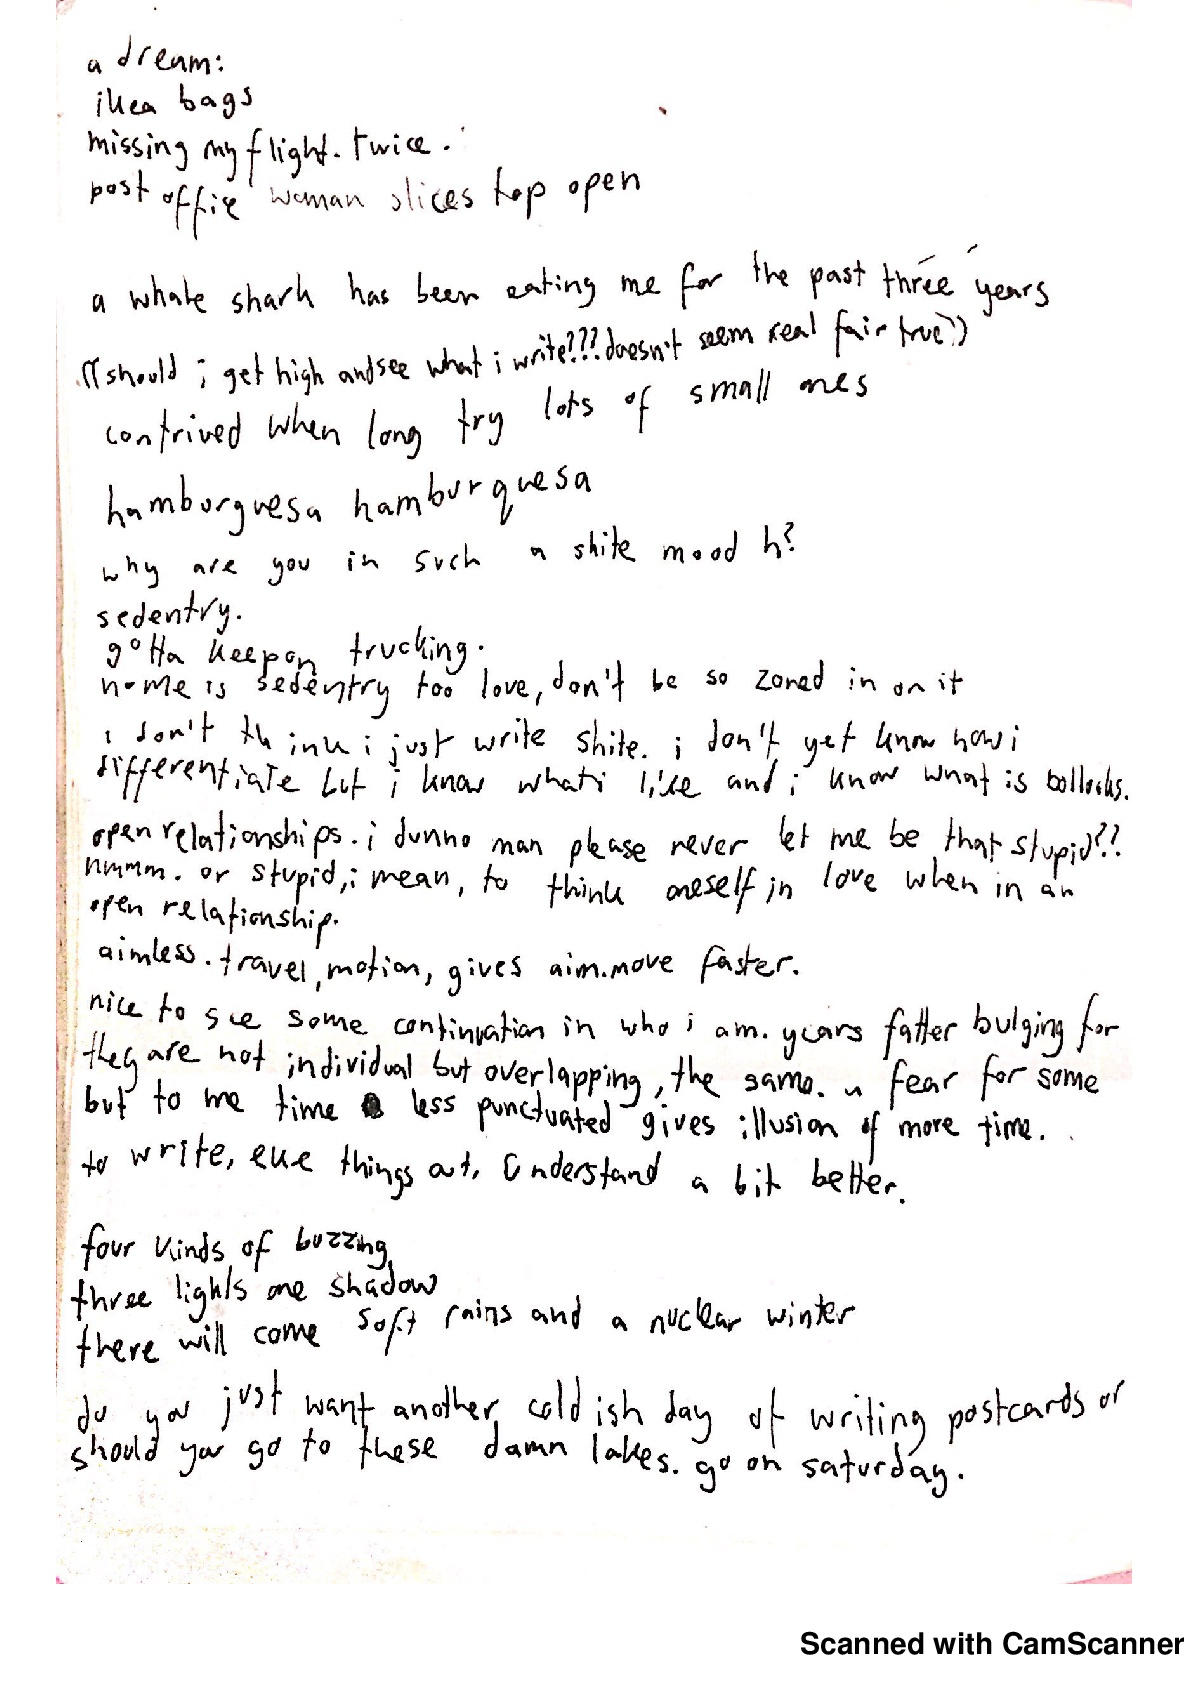 a dream:
ikea bags
missing my flight. twice.
post office woman slices top open
a whale shark has been eating me for the past three years
((should i get high and see what i write??? doesn't seem real fair true))
contrived when long try lots of small ones
hamburguesa hamburguesa
why are you in such a shite mood h?
sedentry.
gotta keep on trucking.
home is sedentry too love, don't be so zoned in on it
i don't think i just write shite. i don't yet know how i
differentiate but i know what i like and i know what is bollocks.
open relationships. i dunno man please never let me be that stupid??
hmmm. or stupid, i mean, to think oneself in love when in an
open relationship.
aimless. travel, motion, gives aim. move faster.
nice to see some continuation in who i am. years fatter bulging for
they are not individual but overlapping, the same. a fear for some
but to me time less punctuated gives illusion of more time.
to write, eke things out. understand a bit better.
four kinds of buzzing
three lights one shadow
there will come soft rains and a nuclear winter
do you just want another cold ish day of writing postcards or
should you go to these damn lakes. go on saturday.
Scanned with CamScanner